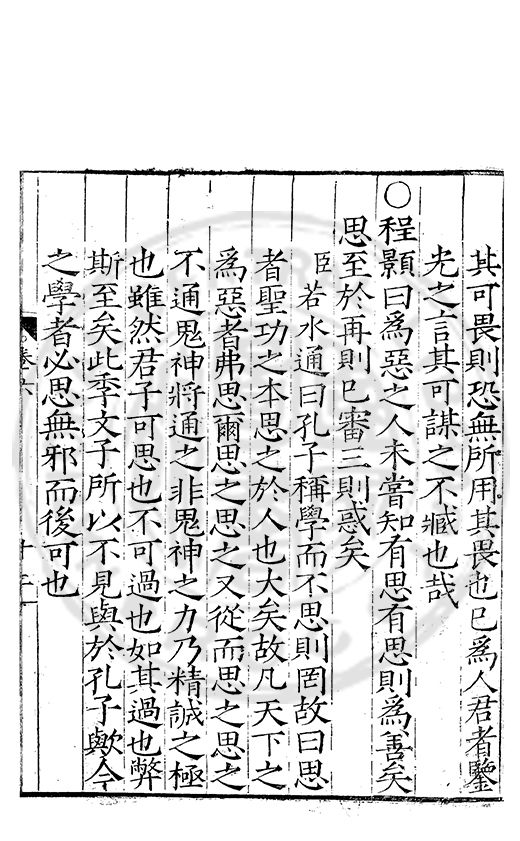 其可畏則恐無所用其畏也已為人君者鑒
光之言其可謀之不臧也哉
○程顥曰為惡之人未嘗知有思有思則為善矣
思至於再則已審三則惑矣
臣若水通曰孔子稱學而不思則罔故曰思
者聖功之本思之於人也大矣故凡天下之
為惡者弗思爾思之思之又從而思之思之
不通鬼神將通之非鬼神之力乃精誠之極
也雖然君子可思也不可過也如其過也弊
斯至矣此季文子所以不見與於孔子歟今
之學者必思無邪而後可也
卷六